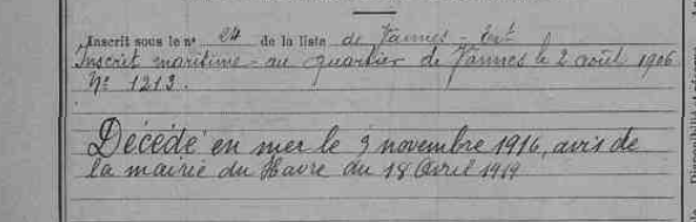 Inscrit sous le n° 24 de la liste de Vannes - Est
Inscrit maritime - au quartier de Vannes le 2 août 1906
N° 1213.
Décédé en mer le 9 novembre 1916, avis de
la mairie du Havre du 18 Avril 1919